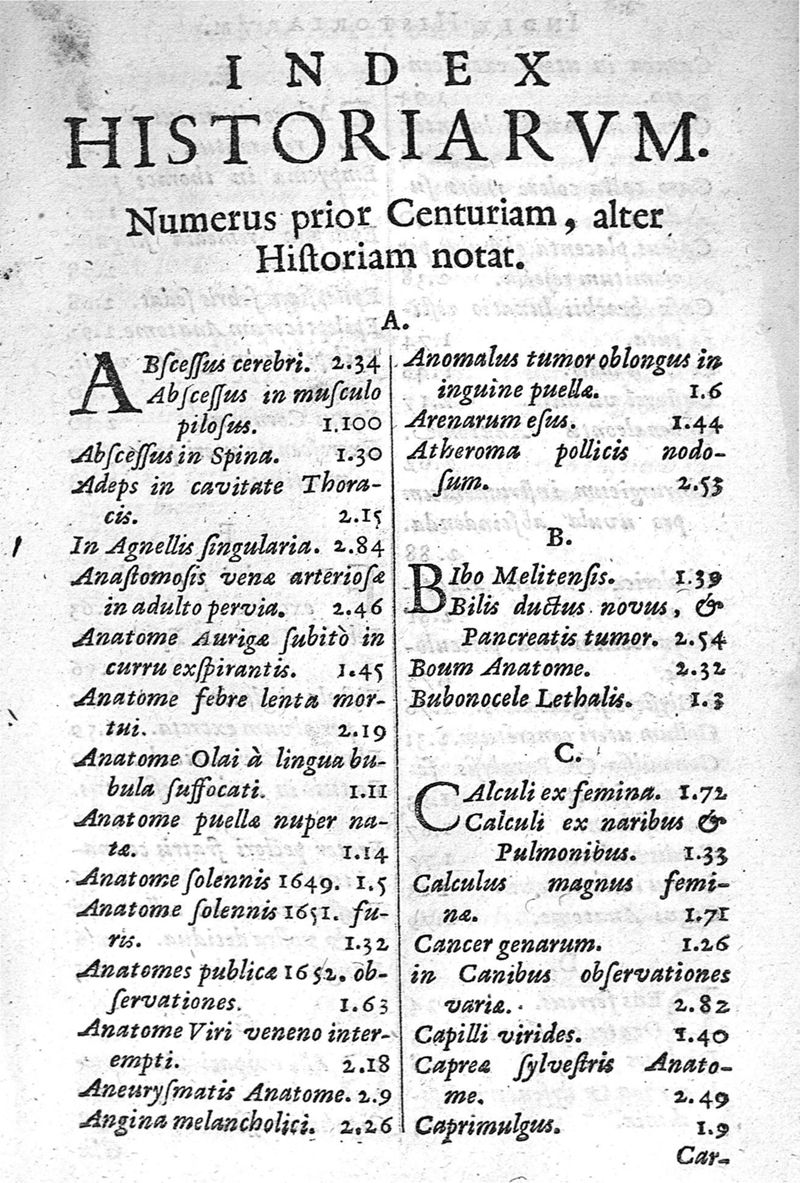 INDEX
HISTORIARVM.
Numerus prior Centuriam, alter
Hiſtoriam notat.
A.
ABſceſſus cerebri. 2.34
Abſceſſus in muſculo
piloſus. 1.100
Abſceſſus in Spina. 1.30
Adeps in cavitate Thora-
cis. 2.15
In Agnellis ſingularia. 2.84
Anaſtomoſis venæ arterioſæ
in adulto pervia. 2.46
Anatome Aurigæ ſubitò in
curru exſpirantis. 1.45
Anatome febre lenta mor-
tui. 2.19
Anatome Olai à lingua bu-
bula ſuffocati. 1.11
Anatome puellæ nuper na-
tæ. 1.14
Anatome ſolennis 1649. 1.5
Anatome ſolennis 1651. fu-
ris. 1.32
Anatomes publicæ 1652. ob-
ſervationes. 1.63
Anatome Viri veneno inter-
empti. 2.18
Aneuryſmatis Anatome. 2.9
Angina melancholici. 2.26
Anomalus tumor oblongus in
inguine puellæ. 1.6
Arenarum eſus. 1.44
Atheroma pollicis nodo-
ſum. 2.53
B.
BIbo Melitenſis. 1.39
Bilis ductus novus, &
Pancreatis tumor. 2.54
Boum Anatome. 2.32
Bubonocele Lethalis. 1.3
C.
CAlculi ex femina. 1.72
Calculi ex naribus &
Pulmonibus. 1.33
Calculus magnus femi-
næ. 1.71
Cancer genarum. 1.26
in Canibus obſervationes
variæ. 2.82
Capilli virides. 1.40
Capreæ ſylveſtris Anato-
me. 2.49
Caprimulgus. 1.9
Car-